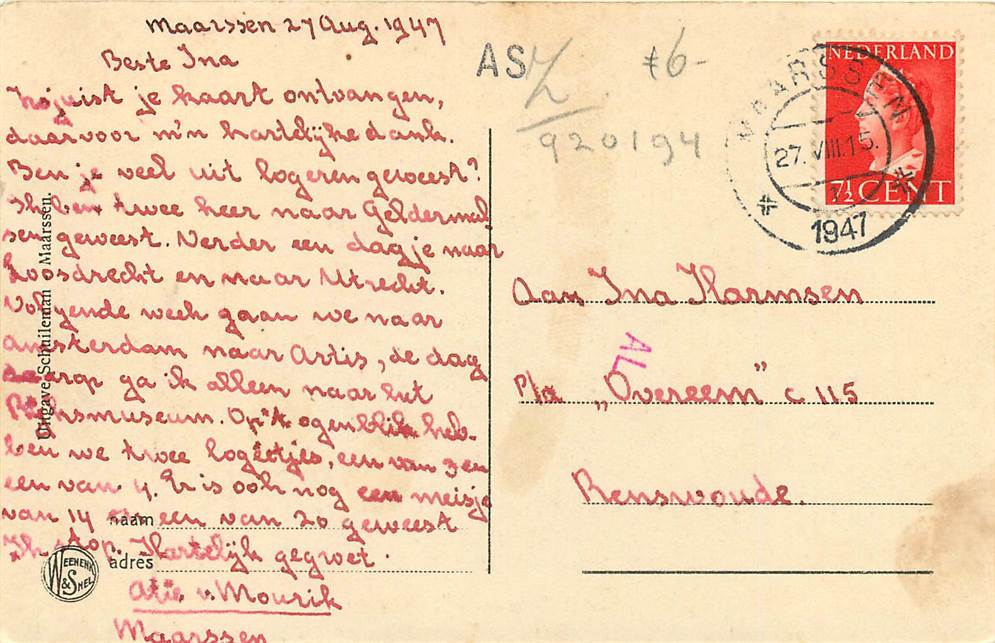 Maarssen 27 Aug. 1947
Beste Ina
Zojuist je kaart ontvangen,
daarvoor m'n hartelijke dank.
Ben je veel uit logeren geweest?
Ik ben twee keer naar Geldermal
sen geweest. Verder een dagje naar
Loosdrecht en naar Utrecht.
Volgende week gaan we naar
Amsterdam naar Artis, de dag
daarop ga ik alleen naar het
Rijksmuseum. Op 't ogenblik heb-
ben we twee logeetjes, een van 3 en
een van 4. Er is ook nog een meisje
van 14 en een van 20 geweest
Ik stop. Hartelijk gegroet.
Atie v. Mourik
Maarssen
naam
adres
Uitgave Schuileman - Maarssen.
WEENENK
& SNEL
AS
£6-
920194
NEDERLAND
7½ CENT
MAARSSEN
27.VIII.15.
1947
Aan Ina Harmsen
AL
p/a "Overeem" C 115
Renswoude.